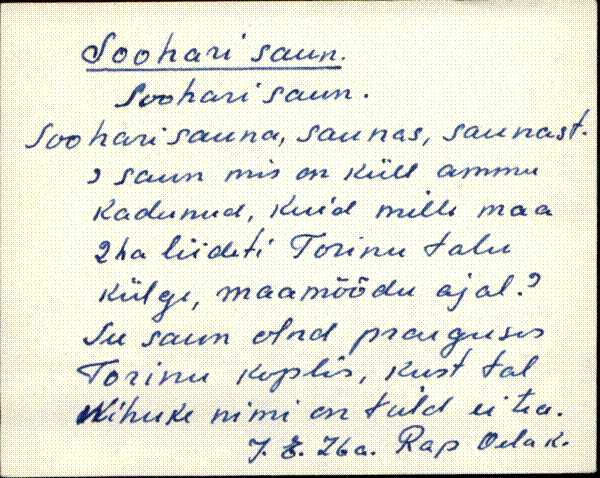 Soohari saun.
Soohari saun.
Soohari sauna, saunas, saunast.
? saun mis on küll ammu
kadunud, kuid mille maa
2 ha liideti Torinu talu
külge, maamõõdu ajal.?
Su saun olnd praegusis
Torinu koplis, kust tal
nihuke nimi on tuld ei tea.
J. E. 26a. Rap